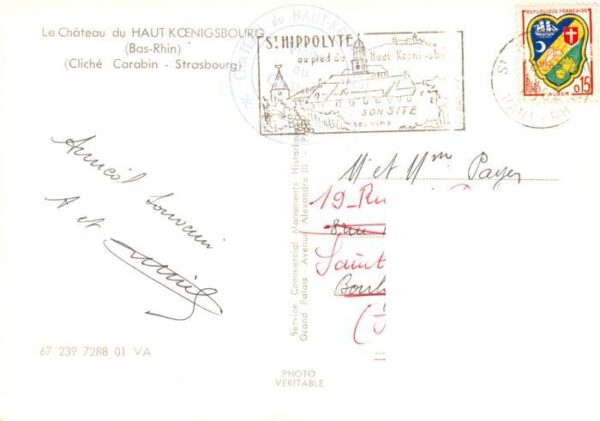 Le Château du HAUT KŒNIGSBOURG
(Bas-Rhin)
(Cliché Carabin - Strasbourg)
CHATEAU du HAUT-K
St HIPPOLYTE
au pied du Haut-Kœnigsbg
SON SITE
ses vins
RÉPUBLIQUE FRANÇAISE
0,15
ALGER
ST
HAUT-RH
Amical Souvenir
A et
Mr et Mme Payer
19_Ru
Saint
Boul
67 239 7288 01 VA
Service Commercial Monuments Historiq
Grand Palais - Avenue Alexandre III - P
PHOTO
VÉRITABLE